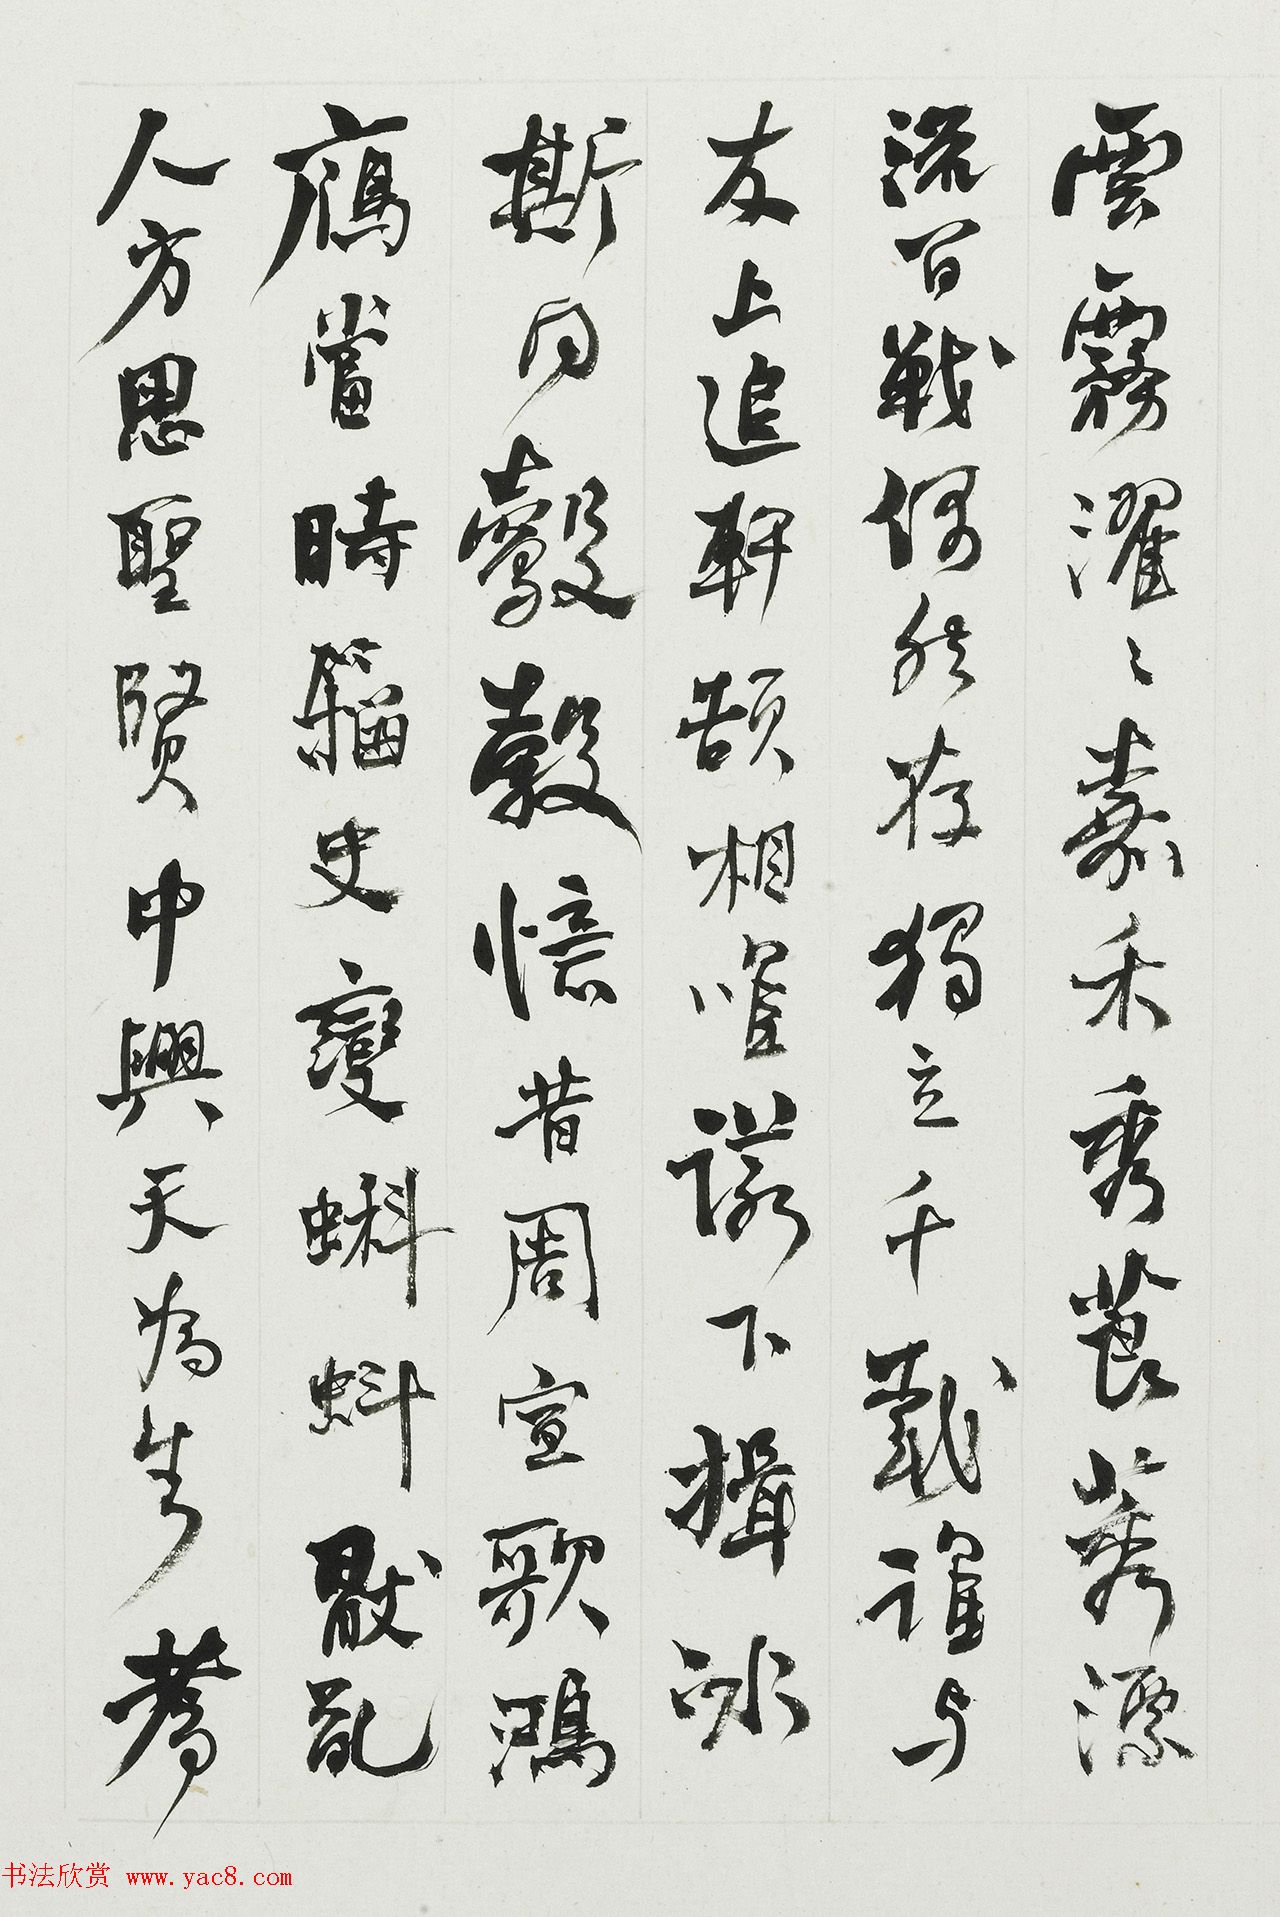 雲霧濯〻嘉禾秀莨莠漂
流百戰偶然存獨立千載誰與
友上追軒頡相唯諾下揖冰
斯同鷇㝅憶昔周宣歌鴻
鴈當時籀史變蝌蚪厭亂
人方思聖賢中興天為生耆
书法欣赏 www.yac8.com